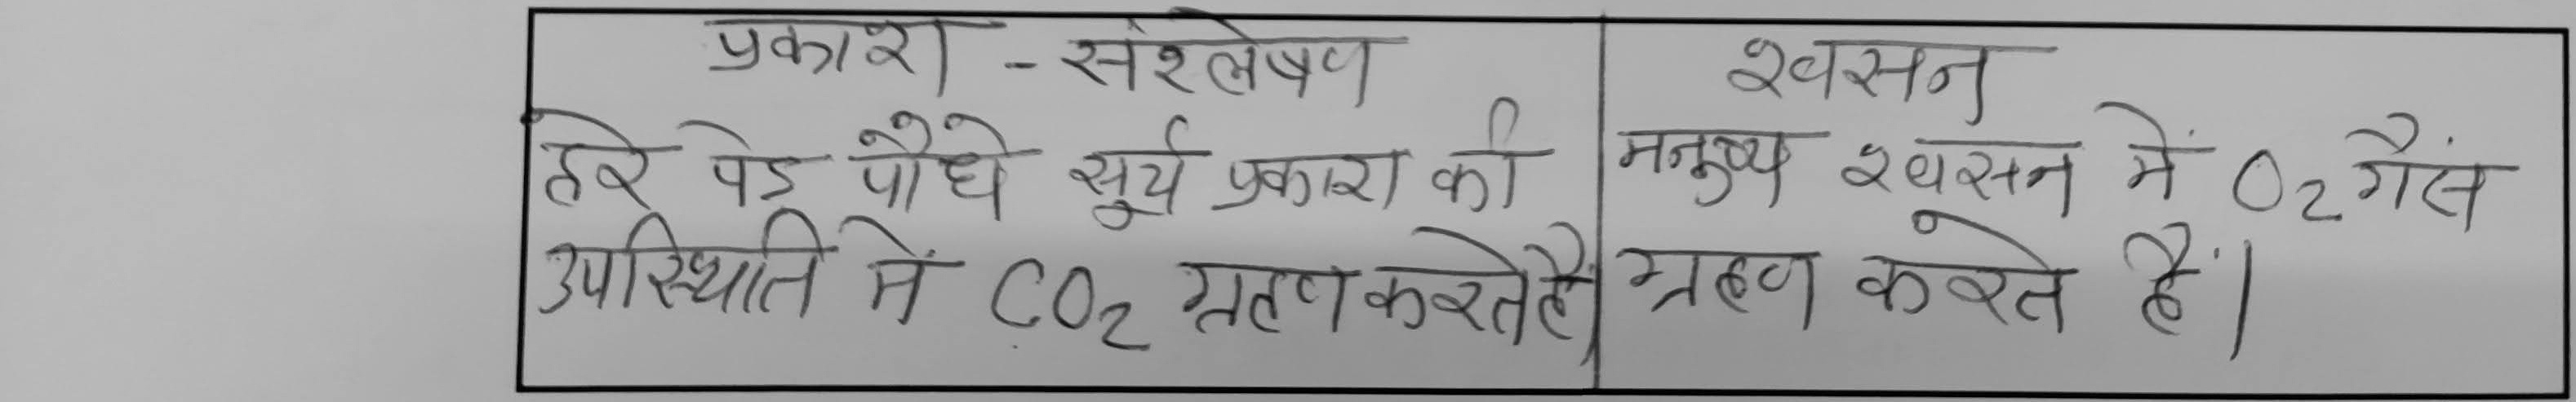 प्रकाश - संश्लेषण
हरे पेड़ पौधे सूर्य प्रकाश की
उपस्थिति में CO2 ग्रहण करते हैं।
श्वसन
मनुष्य श्वसन में O2 गैस
ग्रहण करते हैं।